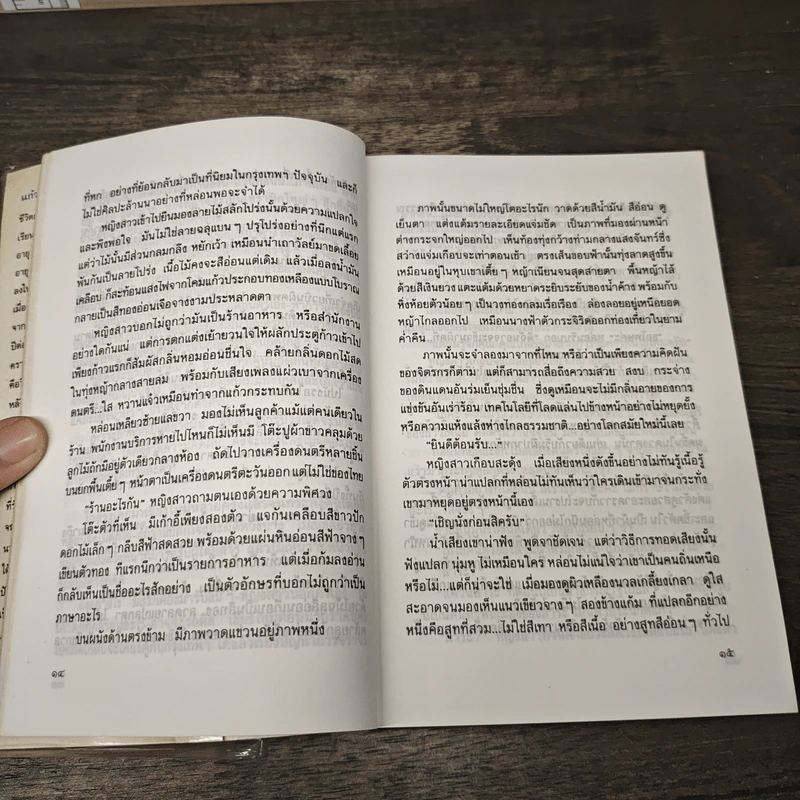 ที่หก อย่างที่ย้อนกลับมาเป็นที่นิยมในกรุงเทพๆ ปัจจุบัน และก็
ไม่ใช่ศิลปะล้านนาอย่างที่หล่อนพอจะจำได้
หญิงสาวเข้าไปยืนมองลายไม้สลักโปร่งนั้นด้วยความแปลกใจ
และพึงพอใจ มันไม่ใช่ลายฉลุแบน ๆ ปรุโปร่งอย่างที่นึกแต่แรก
แต่ว่าไม้นั้นมีส่วนกลมกลึง หยักเว้า เหมือนนำเถาวัลย์มาขดเลื้อย
พันกันเป็นลายโปร่ง เนื้อไม้คงจะสีอ่อนแต่เดิม แล้วเมื่อลงน้ำมัน
เคลือบ ก็สะท้อนแสงไฟจากโคมแก้วประกอบทองเหลืองแบบโบราณ
กลายเป็นสีทองอ่อนเจือจางงามประหลาดตา
หญิงสาวบอกไม่ถูกว่ามันเป็นร้านอาหาร หรือสำนักงาน
อย่างใดกันแน่ แต่การตกแต่งเย้ายวนใจให้ผลักประตูก้าวเข้าไป
เพียงก้าวแรกก็สัมผัสกลิ่นหอมอ่อนชื่นใจ คล้ายกลิ่นดอกไม้สด
ในทุ่งหญ้ากลางสายลม พร้อมกับเสียงเพลงแผ่วเบาจากเครื่อง
ดนตรี...ใส หวานแจ้วเหมือนทำจากแก้วกระทบกัน
หล่อนเหลียวซ้ายแลขวา มองไม่เห็นลูกค้าแม้แต่คนเดียวใน
ร้าน พนักงานบริการหายไปไหนก็ไม่เห็นมี โต๊ะปูผ้าขาวคลุมด้วย
ลูกไม้ถักมีอยู่ตัวเดียวกลางห้อง ถัดไปวางเครื่องดนตรีหลายชิ้น
บนยกพื้นเตี้ยๆ หน้าตาเป็นเครื่องดนตรีตะวันออกแต่ไม่ใช่ของไทย
"ร้านอะไรกัน" หญิงสาวถามตนเองด้วยความพิศวง
โต๊ะตัวที่เห็น มีเก้าอี้เพียงสองตัว แจกันเคลือบสีขาวปัก
ดอกไม้เล็กๆ กลีบสีฟ้าสดสวย พร้อมด้วยแผ่นหินอ่อนสีฟ้าจางๆ
เขียนตัวทอง ที่แรกนึกว่าเป็นรายการอาหาร แต่เมื่อก้มลงอ่าน
ก็กลับเห็นเป็นชื่ออะไรสักอย่าง เป็นตัวอักษรที่บอกไม่ถูกว่าเป็น
ภาษาอะไร
บนผนังด้านตรงข้าม มีภาพวาดแขวนอยู่ภาพหนึ่ง
๑๔
ภาพนั้นขนาดไม่ใหญ่โตอะไรนัก วาดด้วยสีน้ำมัน สีอ่อน ดู
เย็นตา แต่งแต้มรายละเอียดแจ่มชัด เป็นภาพที่มองผ่านหน้า
ต่างกระจกใหญ่ออกไป เห็นท้องทุ่งกว้างท่ามกลางแสงจันทร์ซึ่ง
สว่างแจ่มเกือบจะเท่าตอนเช้า ตรงเส้นขอบฟ้านั้นทุ่งลาดสูงขึ้น
เหมือนอยู่ในหุบเขาเตี้ยๆ หญ้าเนียนจนสุดสายตา พื้นหญ้าไล้
ด้วยสีเงินยวง แตะแต้มด้วยหยาดระยิบระยับของน้ำค้าง พร้อมกับ
หิ่งห้อยตัวน้อยๆ เป็นวงทองกลมเรื่อเรือง ล่องลอยอยู่เหนือยอด
หญ้าไกลออกไป เหมือนนางฟ้าตัวกระจิริดออกท่องเที่ยวในยาม
ค่ำคืน
ภาพนั้นจะจำลองมาจากที่ไหน หรือว่าเป็นเพียงความคิดฝัน
ของจิตรกรก็ตาม แต่ก็สามารถสื่อถึงความสวย สงบ กระจ่าง
ของดินแดนอันร่มเย็นชุ่มชื่น ซึ่งดูเหมือนจะไม่มีกลิ่นอายของการ
แข่งขันอันเร่าร้อน เทคโนโลยีที่โลดแล่นไปข้างหน้าอย่างไม่หยุดยั้ง
หรือความแห้งแล้งห่างไกลธรรมชาติ...อย่างโลกสมัยใหม่นี้เลย
"ยินดีต้อนรับ..."
หญิงสาวเกือบสะดุ้ง เมื่อเสียงหนึ่งดังขึ้นอย่างไม่ทันรู้เนื้อรู้
ตัวตรงหน้า น่าแปลกที่หล่อนไม่ทันเห็นว่าใครเดินเข้ามาจนกระทั่ง
เขามาหยุดอยู่ตรงหน้านี้เอง
"เชิญนั่งก่อนสิครับ"
น้ำเสียงเขาน่าฟัง พูดจาชัดเจน แต่ว่าวิธีการทอดเสียงนั้น
ฟังแปลก นุ่มหู ไม่เหมือนใคร หล่อนไม่แน่ใจว่าเขาเป็นคนถิ่นเหนือ
หรือไม่...แต่ก็น่าจะใช่ เมื่อมองดูผิวเหลืองนวลเกลี้ยงเกลา ดูใส
สะอาดจนมองเห็นแนวเขียวจางๆ สองข้างแก้ม ที่แปลกอีกอย่าง
หนึ่งคือสูทที่สวม...ไม่ใช่สีเทา หรือสีเนื้อ อย่างสูทสีอ่อนๆ ทั่วไป
๑๕